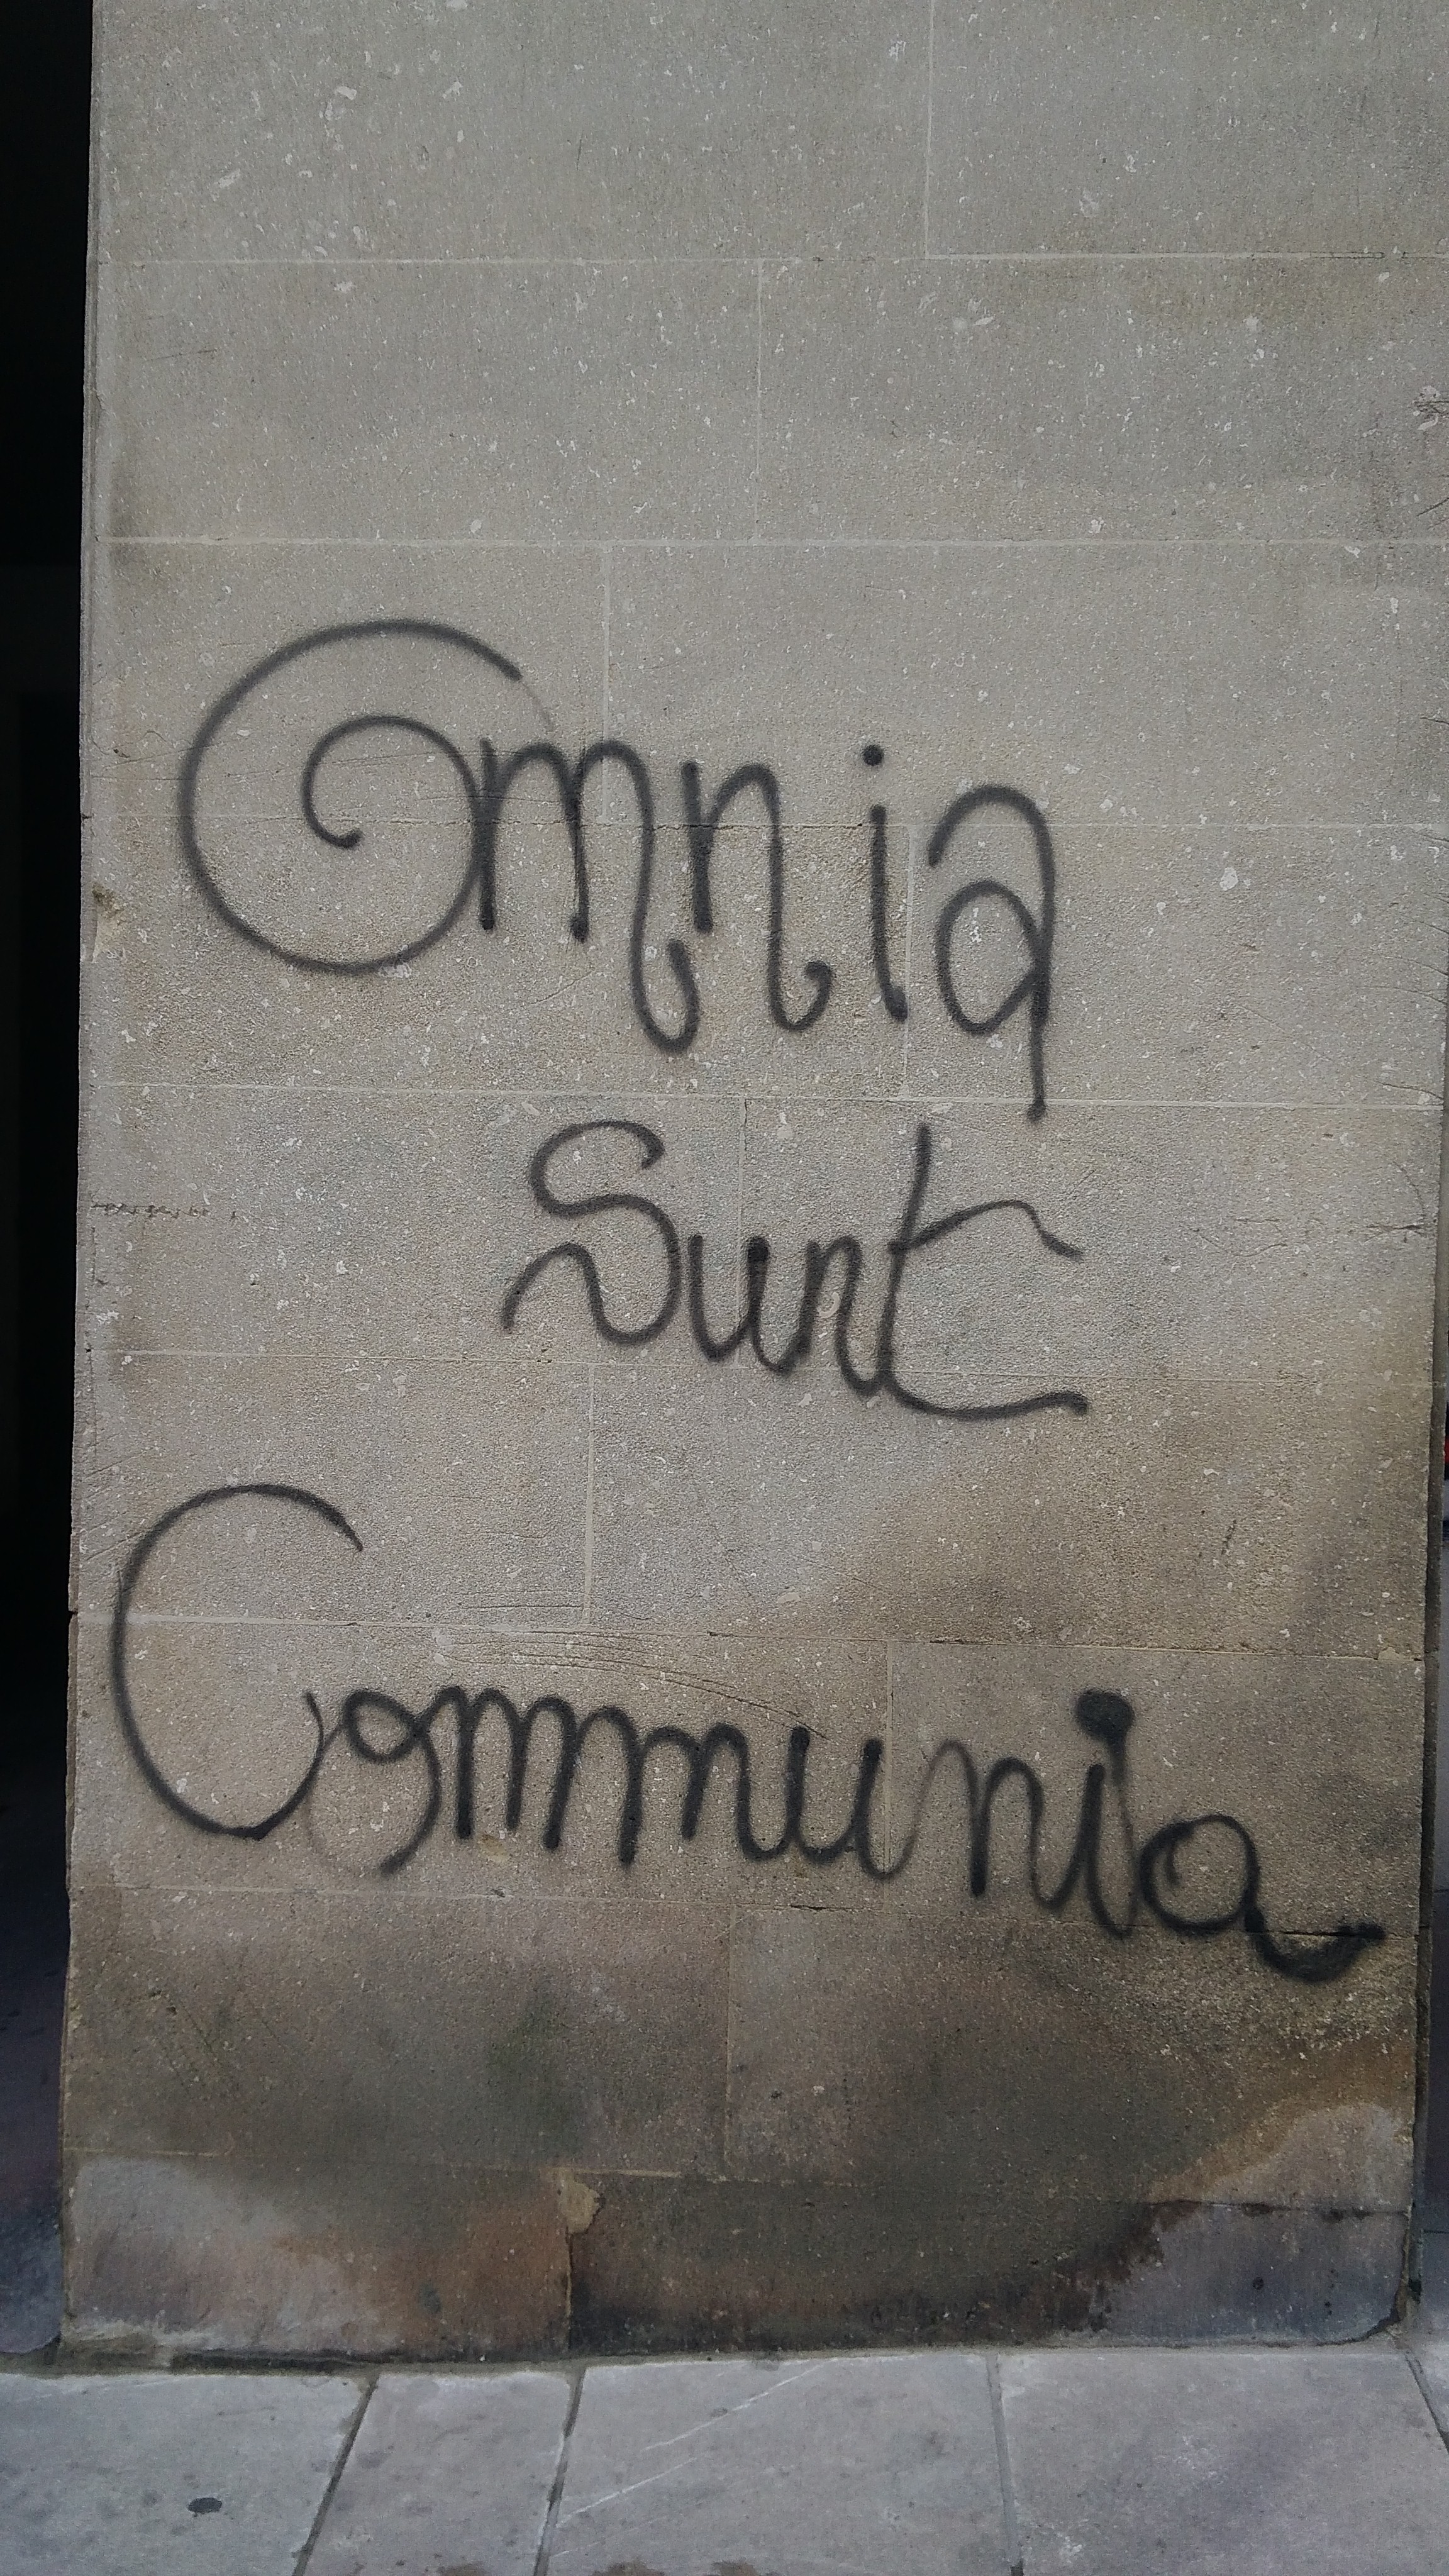 Omnia
Sunt
Communia